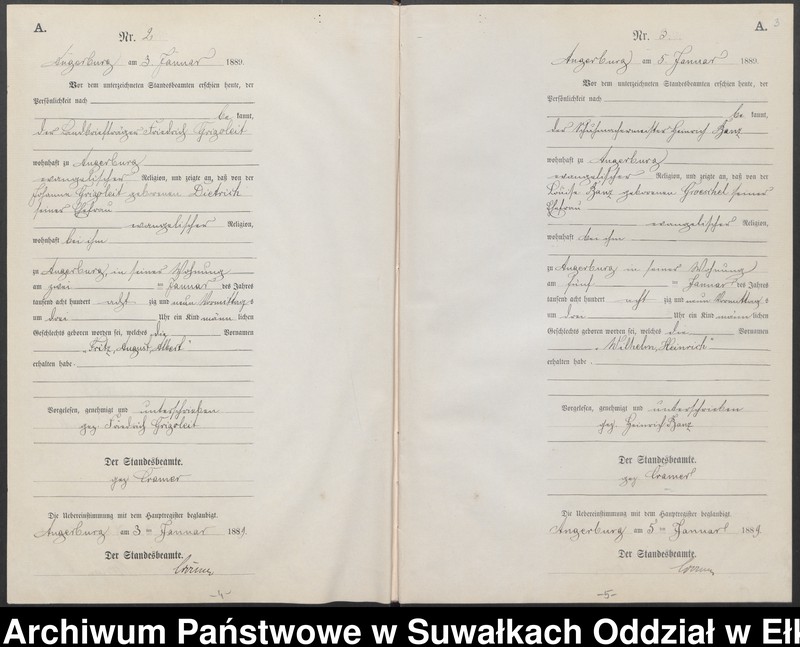 A.
Nr. 2
Angerburg am 3 Januar 1889.
Vor dem unterzeichneten Standesbeamten erschien heute, der
Persönlichkeit nach
be kannt,
der Landbriefträger Friedrich Grigoleit
wohnhaft zu Angerburg
evangelischer Religion, und zeigte an, daß von der
Johanna Grigoleit geborenen Dietrich
seiner Ehefrau
evangelischer Religion,
wohnhaft bei ihm
zu Angerburg, in seiner Wohnung
am zwei ten Januar des Jahres
tausend acht hundert acht zig und neun Vormittag s
um drei Uhr ein Kind männ lichen
Geschlechts geboren worden sei, welches die Vornamen
„Fritz, August, Albert"
erhalten habe.
Vorgelesen, genehmigt und unterschrieben
gez. Friedrich Grigoleit
Der Standesbeamte.
gez. Cramer
Die Uebereinstimmung mit dem Hauptregister beglaubigt
Angerburg am 3 ten Januar 1889.
Der Standesbeamte.
-4-
A. 3
Nr. 3
Angerburg am 5 Januar 1889.
Vor dem unterzeichneten Standesbeamten erschien heute, der
Persönlichkeit nach
be kannt,
der Schuhmachermeister Heinrich Banz
wohnhaft zu Angerburg
evangelischer Religion, und zeigte an, daß von der
Louise Banz geborenen Groeschel seiner
Ehefrau
evangelischer Religion,
wohnhaft bei ihm
zu Angerburg in seiner Wohnung
am fünf ten Januar des Jahres
tausend acht hundert acht zig und neun Vormittag s
um drei Uhr ein Kind männ lichen
Geschlechts geboren worden sei, welches die Vornamen
„Wilhelm, Heinrich"
erhalten habe.
Vorgelesen, genehmigt und unterschrieben
gez. Heinrich Banz
Der Standesbeamte.
gez Cramer
Die Uebereinstimmung mit dem Hauptregister beglaubigt.
Angerburg am 5 ten Januar 1889.
Der Standesbeamte.
-5-
Archiwum Państwowe w Suwałkach Oddział w Ełk